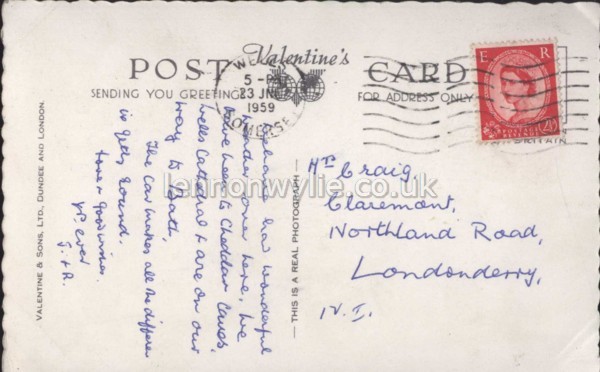 Valentine's
POST CARD
SENDING YOU GREETING
FOR ADDRESS ONLY
5-PM
23 JNE
1959
SOMERSE
E R
2½
VALENTINE & SONS, LTD., DUNDEE AND LONDON.
— THIS IS A REAL PHOTOGRAPH —
have had wonderful
weather over here, we
have been to Cheddar Caves
Wells Cathedral & are on our
way to Bath,
The Car makes all the differen
in getting round.
Love & good wishes
yrs ever
J. & R.
Mrs Craig,
Claremont,
Northland Road,
Londonderry,
N. I.
lennonwylie.co.uk